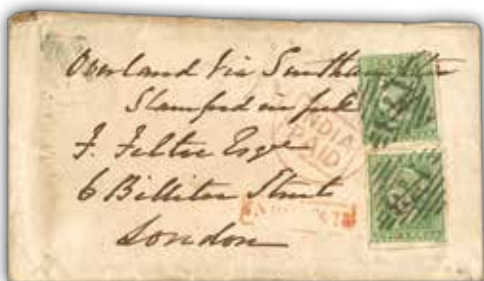 Overland Via Southampton
Stamped in full
INDIA
PAID
F. Filter Esqre
6 Billiter Street
London